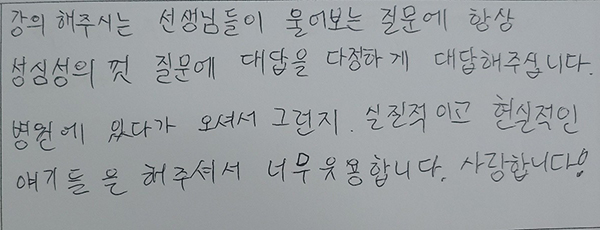 강의 해주시는 선생님들이 물어보는 질문에 항상
성심성의 껏 질문에 대답을 다정하게 대답해주십니다.
병원에 있다가 오셔서 그런지. 실질적 이고 현실적인
얘기들 은 해주셔서 너무 유용합니다. 사랑합니다!